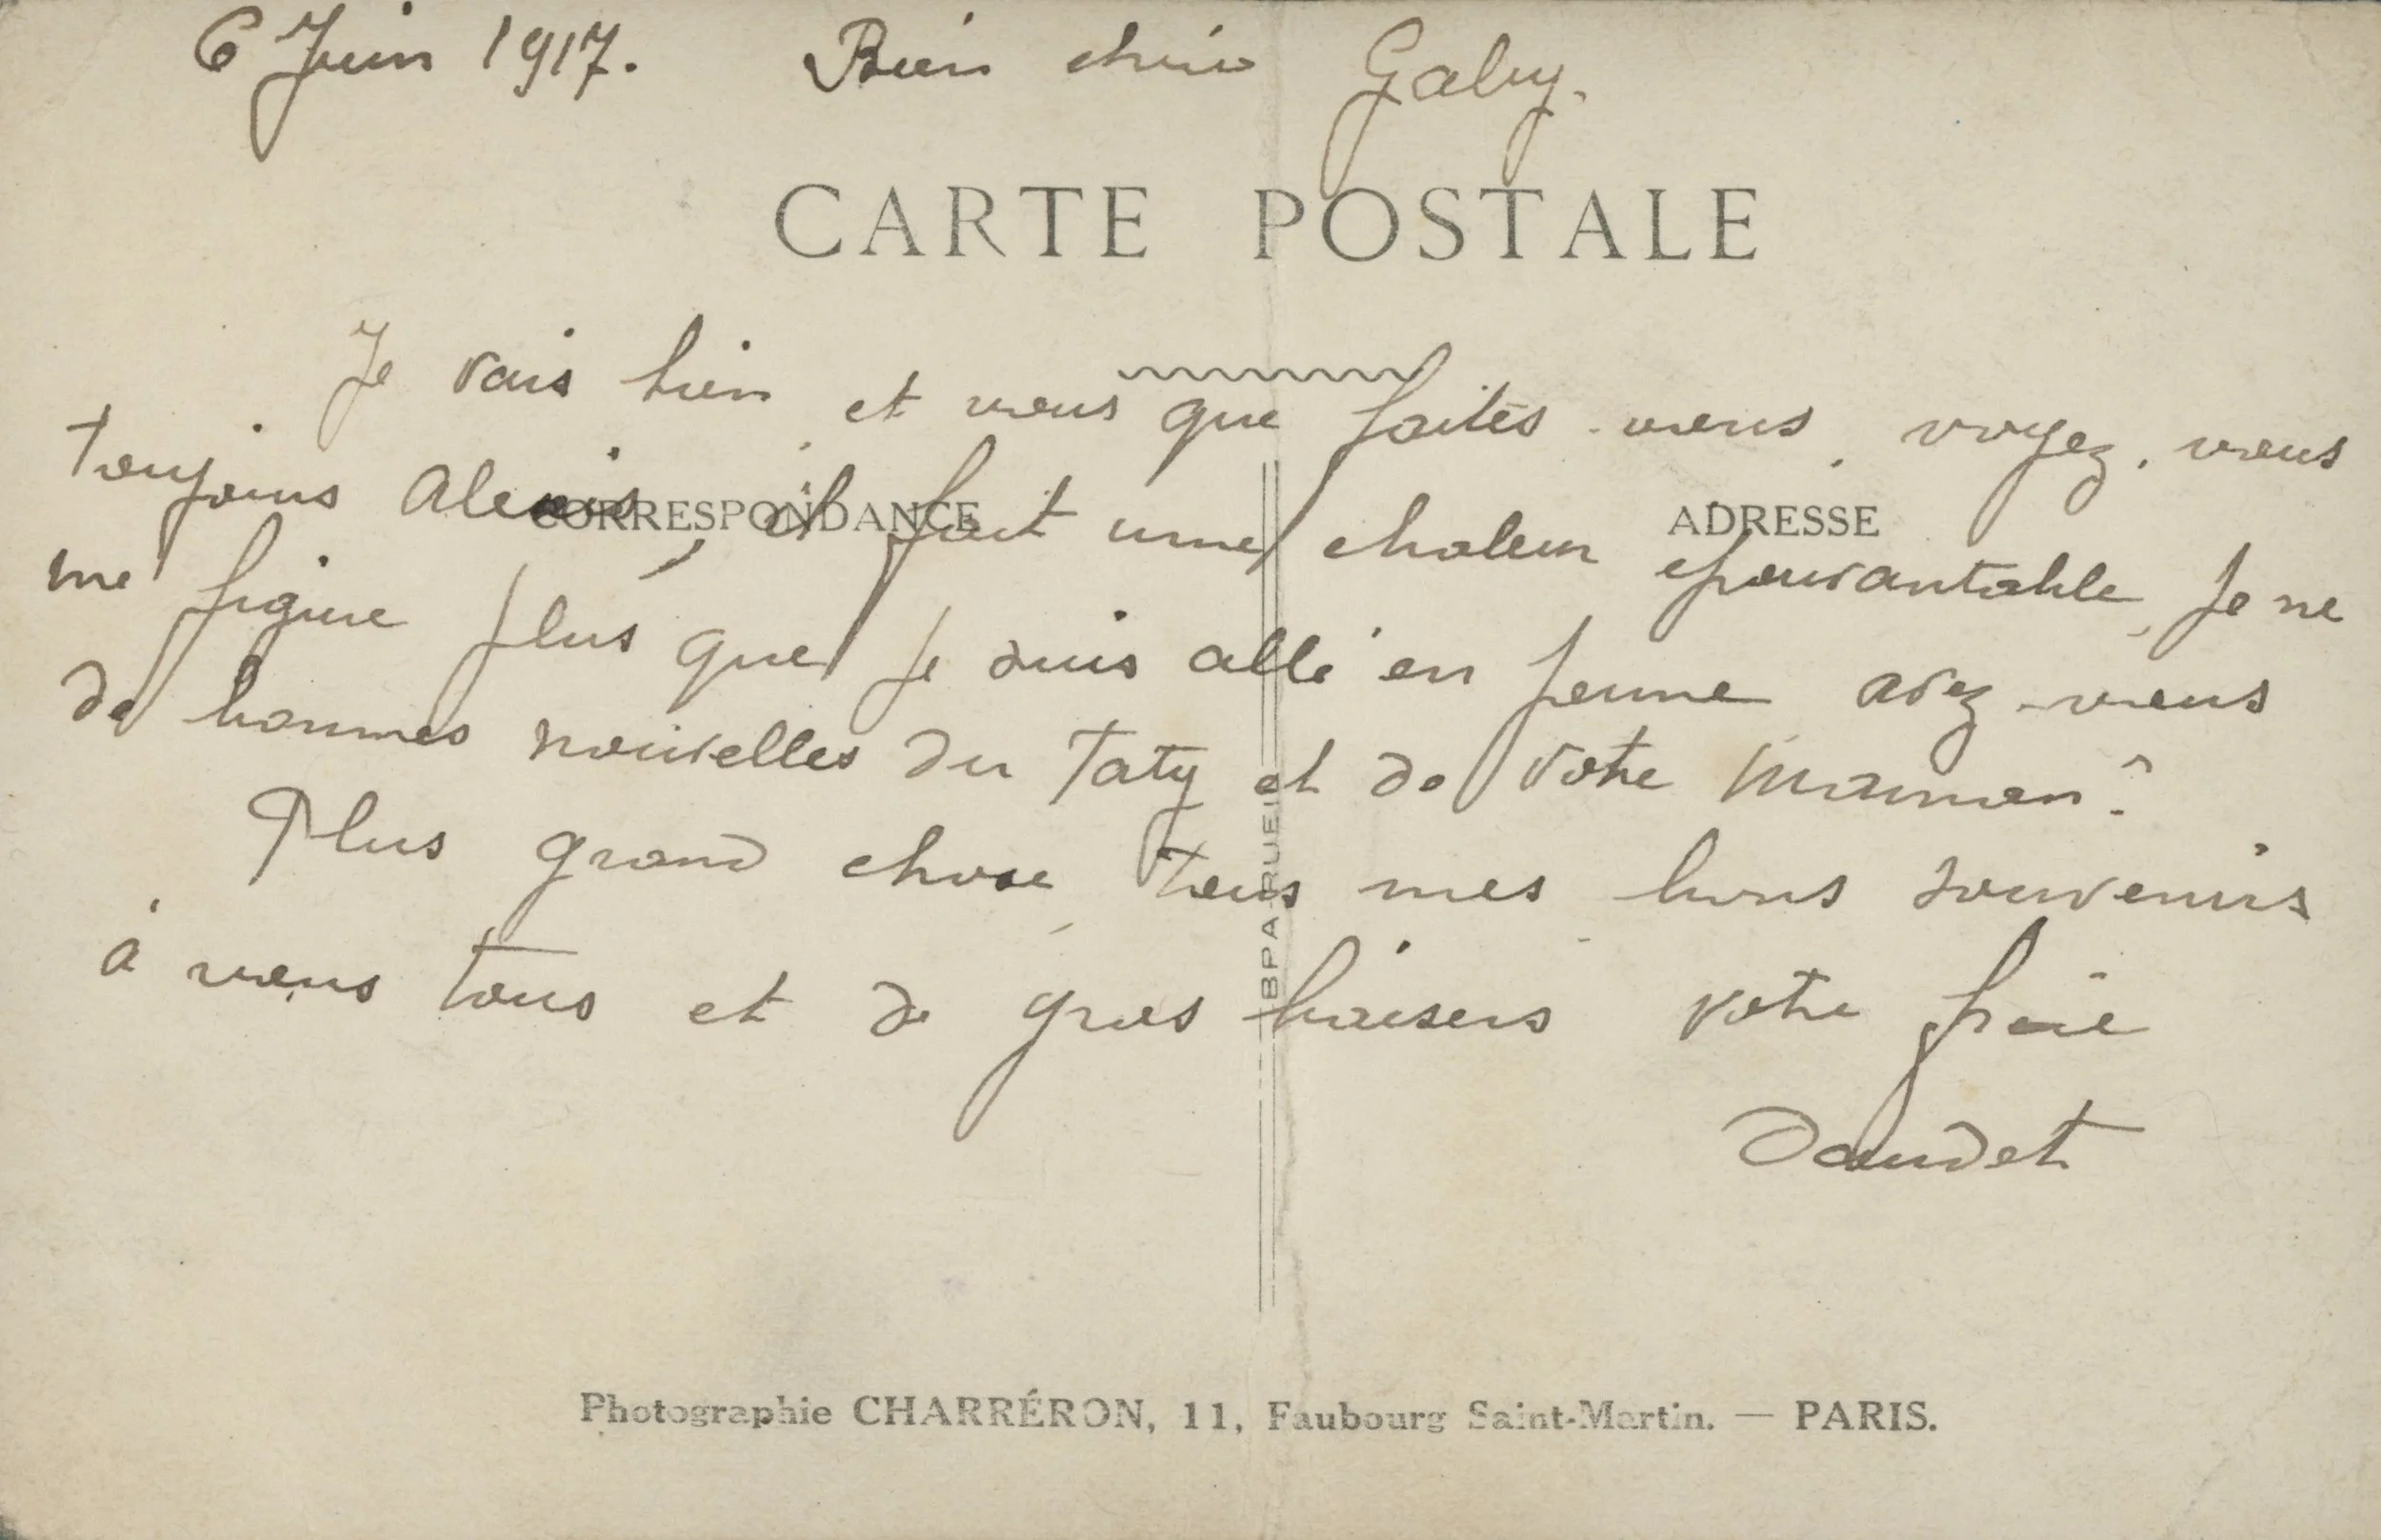 6 Juin 1917. Bien chère Gaby.
CARTE POSTALE
Je vais bien et vous que faites-vous, voyez-vous
CORRESPONDANCE
ADRESSE
toujours Alexis, il fait une chaleur epouvantable, Je ne
me figure plus que je suis allé en perme avez-vous
de bonnes nouvelles du Taty et de votre Maman?
Plus grand chose, tous mes bons souvenirs
à vous tous et de gros baisers votre
Daudet
Photographie CHARRÉRON, 11, Faubourg Saint-Martin. — PARIS.